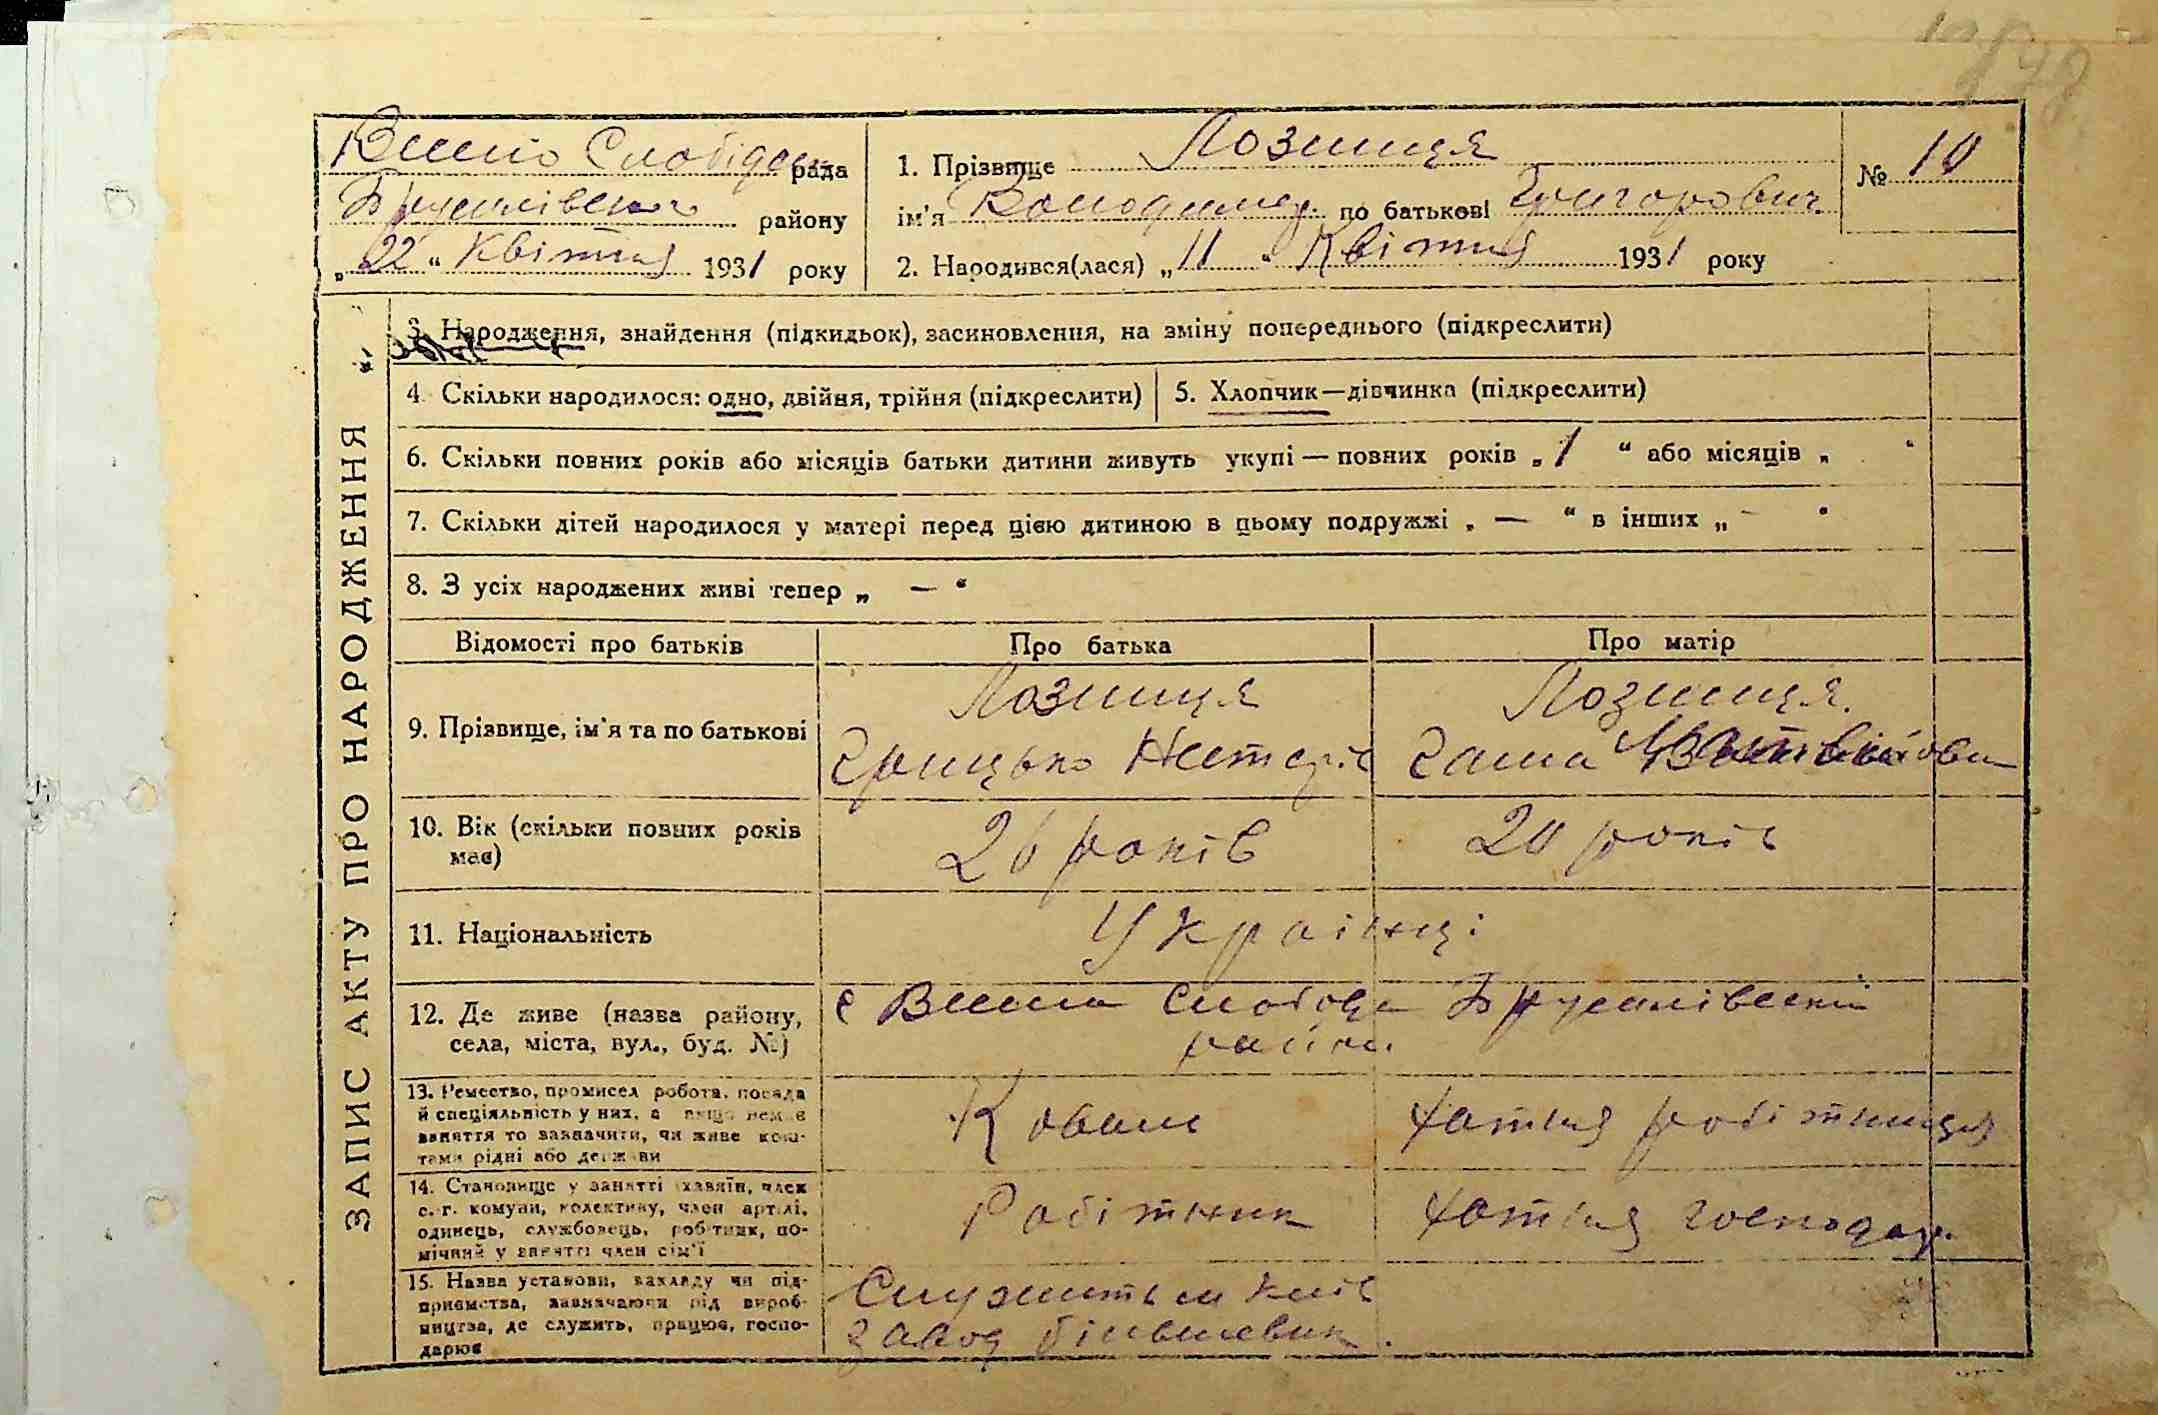 Вишнo Слобідська рада
Брусилівського району
„22“ Квітня 1931 року
1. Прізвище Лозниця
ім'я Володимер по батькові Григорович
№ 10
2. Народився(лася) „11“ Квітня 1931 року
ЗАПИС АКТУ ПРО НАРОДЖЕННЯ
3. Народження, знайдення (підкидьок), засиновлення, на зміну попереднього (підкреслити)
4. Скільки народилося: одно, двійня, трійня (підкреслити)
5. Хлопчик—дівчинка (підкреслити)
6. Скільки повних років або місяців батьки дитини живуть укупі — повних років „1“ або місяців „ “
7. Скільки дітей народилося у матері перед цією дитиною в цьому подружжі „—“ в інших „-“
8. З усіх народжених живі тепер „—“
Відомості про батьків
Про батька
Про матір
9. Прізвище, ім'я та по батькові
Лозниця
Грицько Нестерів
Лозниця
Ганна
10. Вік (скільки повних років має)
26 років
20 років
11. Національність
Українці
12. Де живе (назва району,
села, міста, вул., буд. №)
с Вишня Слобода Брусилівський
район.
13. Ремество, промисел робота, посада
й спеціяльність у них, а якщо немає
заняття то зазначити, чи живе кош-
тами рідні або держави
Коваль
Хатня робітниця
14. Становище у занятті (хазяїн, член
с.-г. комуни, колективу, член артілі,
одинець, службовець, робітник, по-
мічний у занятті член сім'ї
Робітник
Хатня господар.
15. Назва установи, закладу чи під-
приємства, зазначаючи рід вироб-
ництва, де служить, працює, госпо-
дарює
Служить м Київ
завод більшевик.